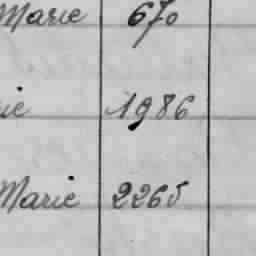 Marie 670
ie 1986
Marie 2265